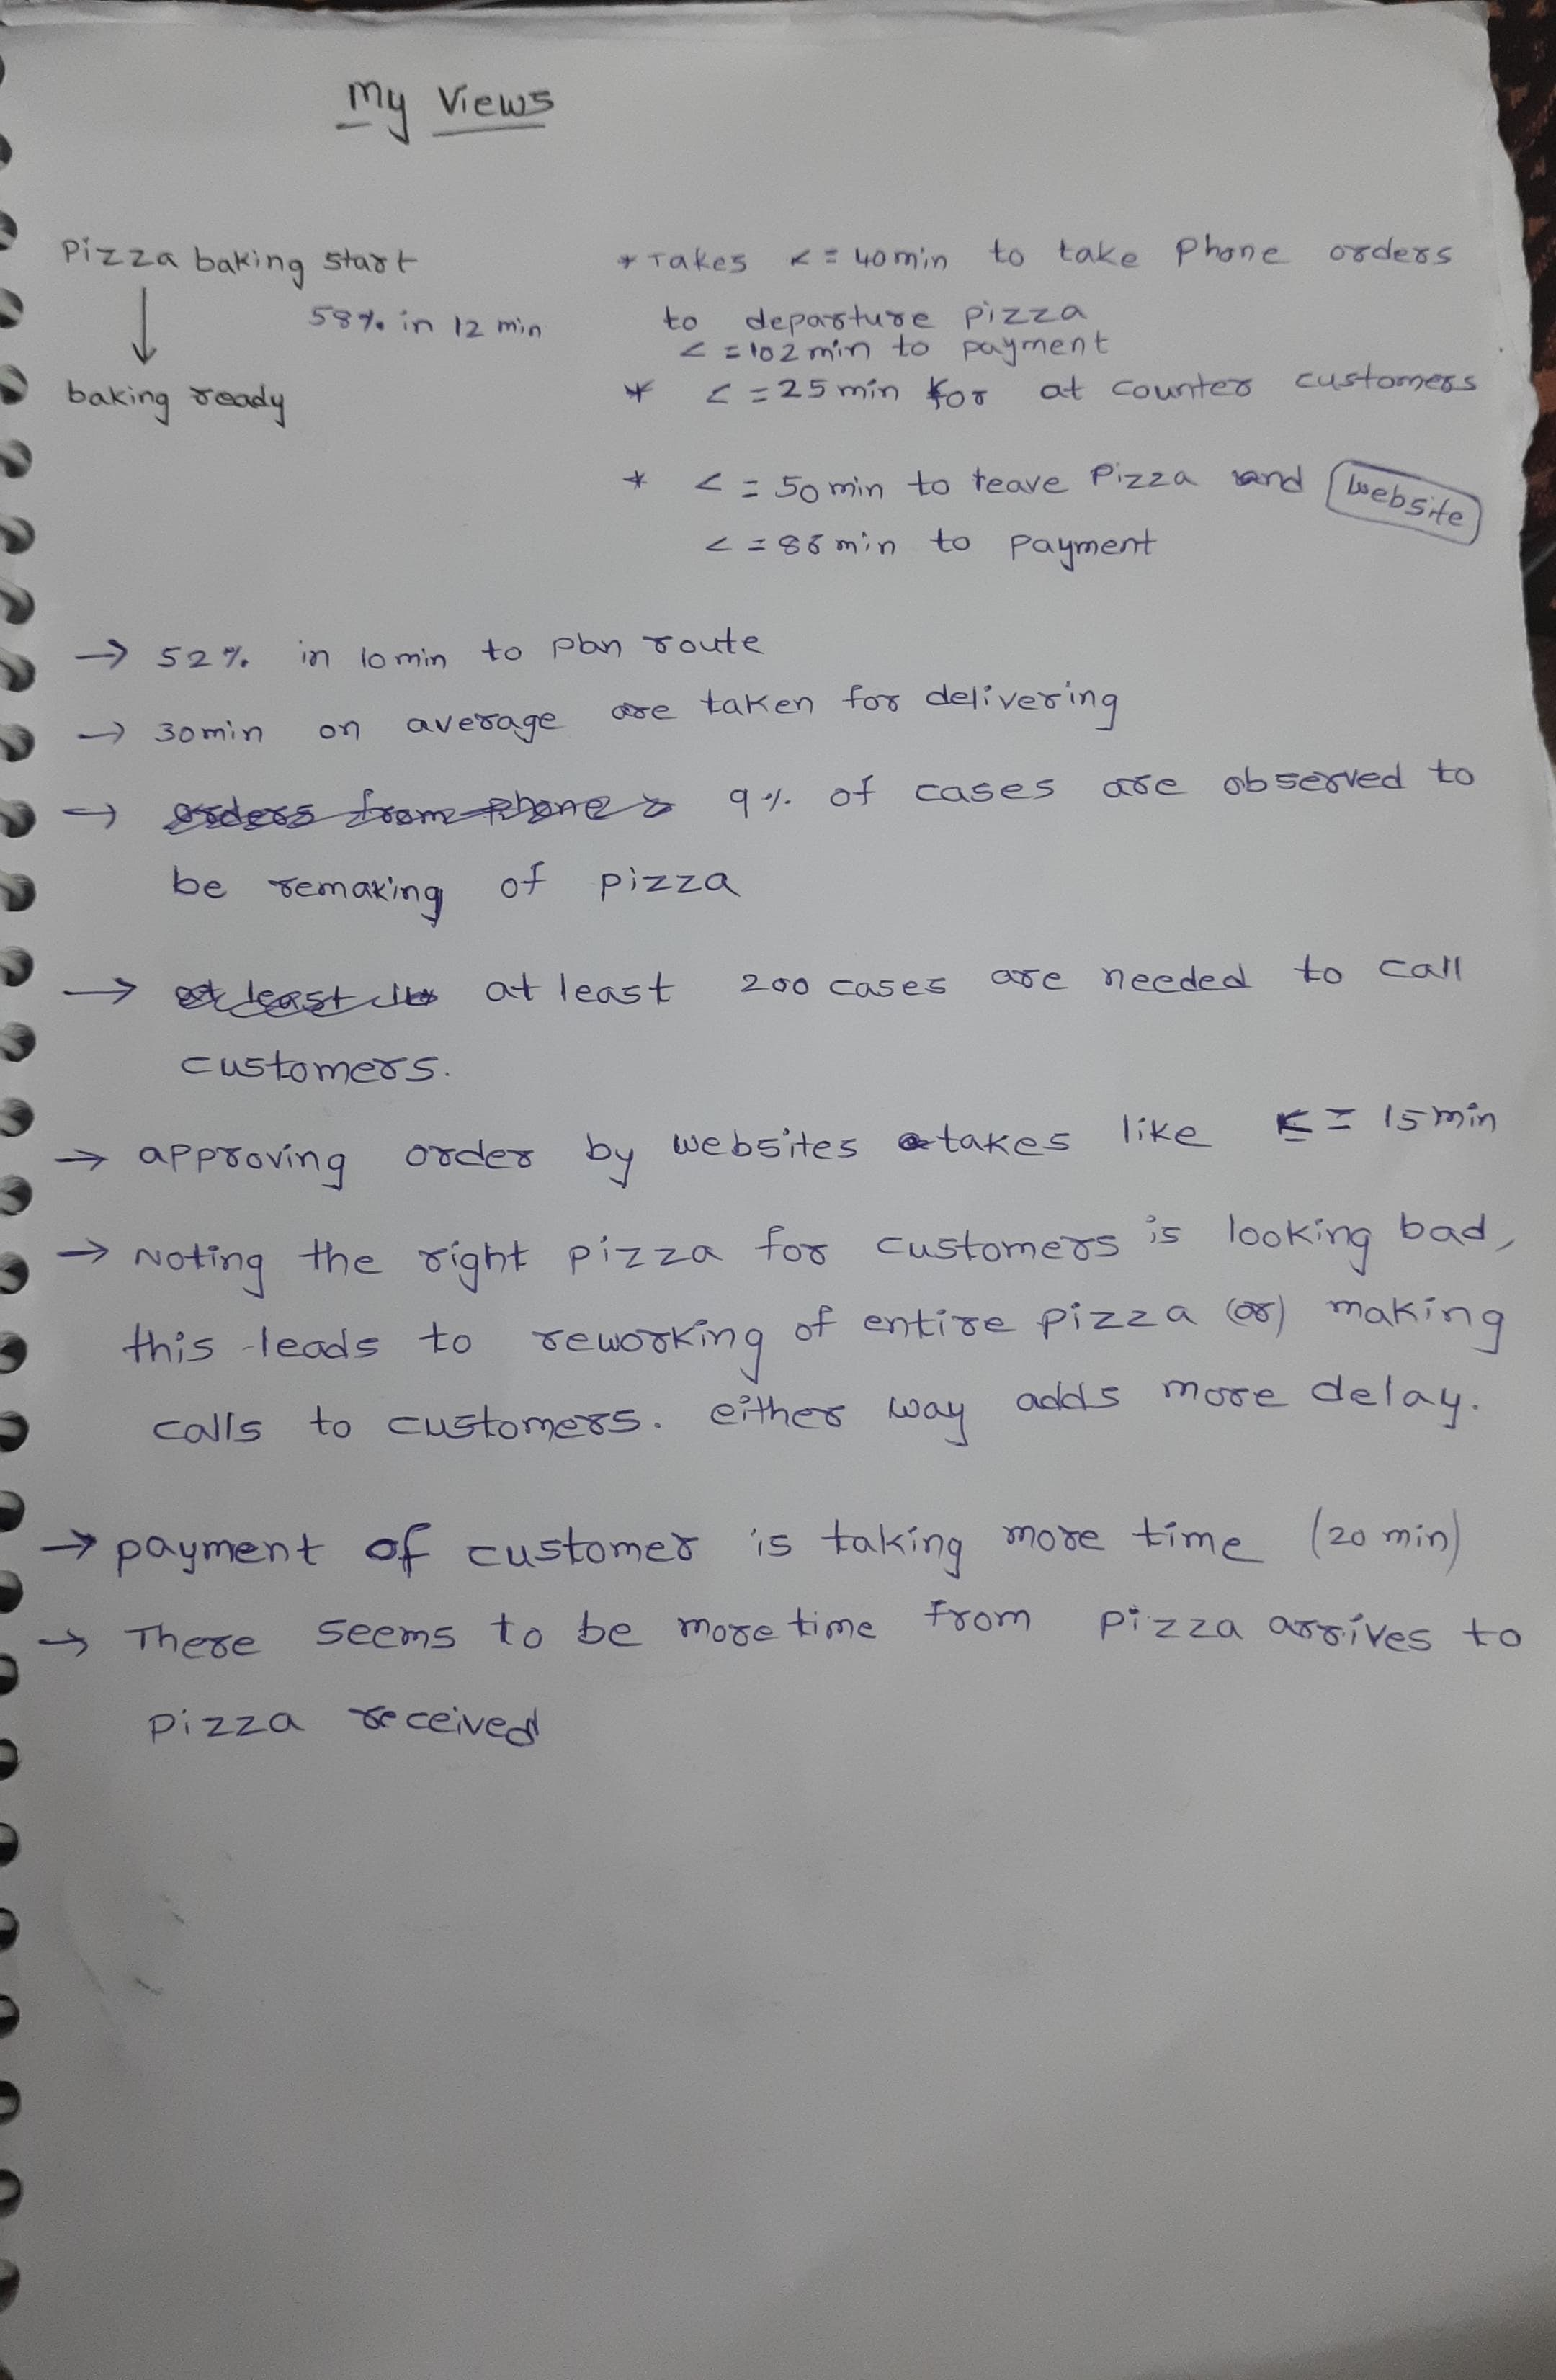 My Views
Pizza baking start
58% in 12 min
baking ready
* Takes <= 40min to take Phone orders
to departure pizza
<=102min to payment
* <=25min for at counter customers
* <=50min to leave Pizza and website
<= min to payment
→ 52% in 10min to plan route
→ 30min on average are taken for delivering
→ orders from phone 9% of cases are observed to
be remaking of pizza
→ at least at least 200 cases are needed to call
customers.
→ approving order by websites takes like <= 15min
→ Noting the right pizza for customers is looking bad,
this leads to reworking of entire pizza (or) making
calls to customers. either way adds more delay.
→ payment of customer is taking more time (20 min)
→ There seems to be more time from pizza arrives to
pizza received